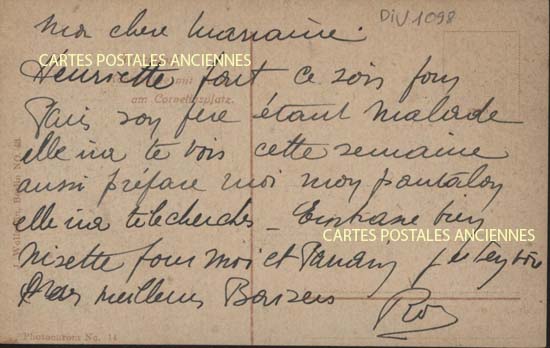 DIV.1098
Ma chere Marraine.
CARTES POSTALES ANCIENNES
Henriette part ce soir pour
am Corneliusplatz.
Paris son père étant malade
elle ira te voir cette semaine
aussi prépare moi mon pantalon
elle ira te le chercher - Embrasse bien
CARTES POSTALES ANCIENNES
Nisette pour moi et Parrain
meilleurs Baisers
Photochromie No. 14